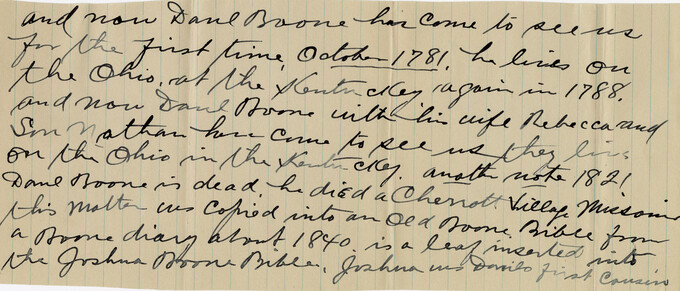 and now Danl Boone has come to see us
for the first time, October 1781, he lives on
the Ohio, at the Kentuckey again in 1788.
and now Danl Boone with his wife Rebecca and
Son Nathan have come to see us they live
on the Ohio in the Kentuckey. another note 1821
Danl Boone is dead, he died a Cherrott Village Missouri
this matter was Copied into an Old Boone Bible from
a Boone diary about 1840. is a leaf inserted into
the Joshua Boone Bible, Joshua was Daniels first Cousin